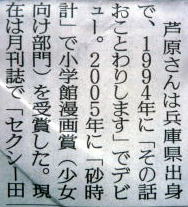 芦原さんは兵庫県出身
で、1994年に「その話
おことわりします」でデビ
ュー。2005年に「砂時
計」で小学館漫画賞（少女
向け部門）を受賞した。現
在は月刊誌で「セクシー田